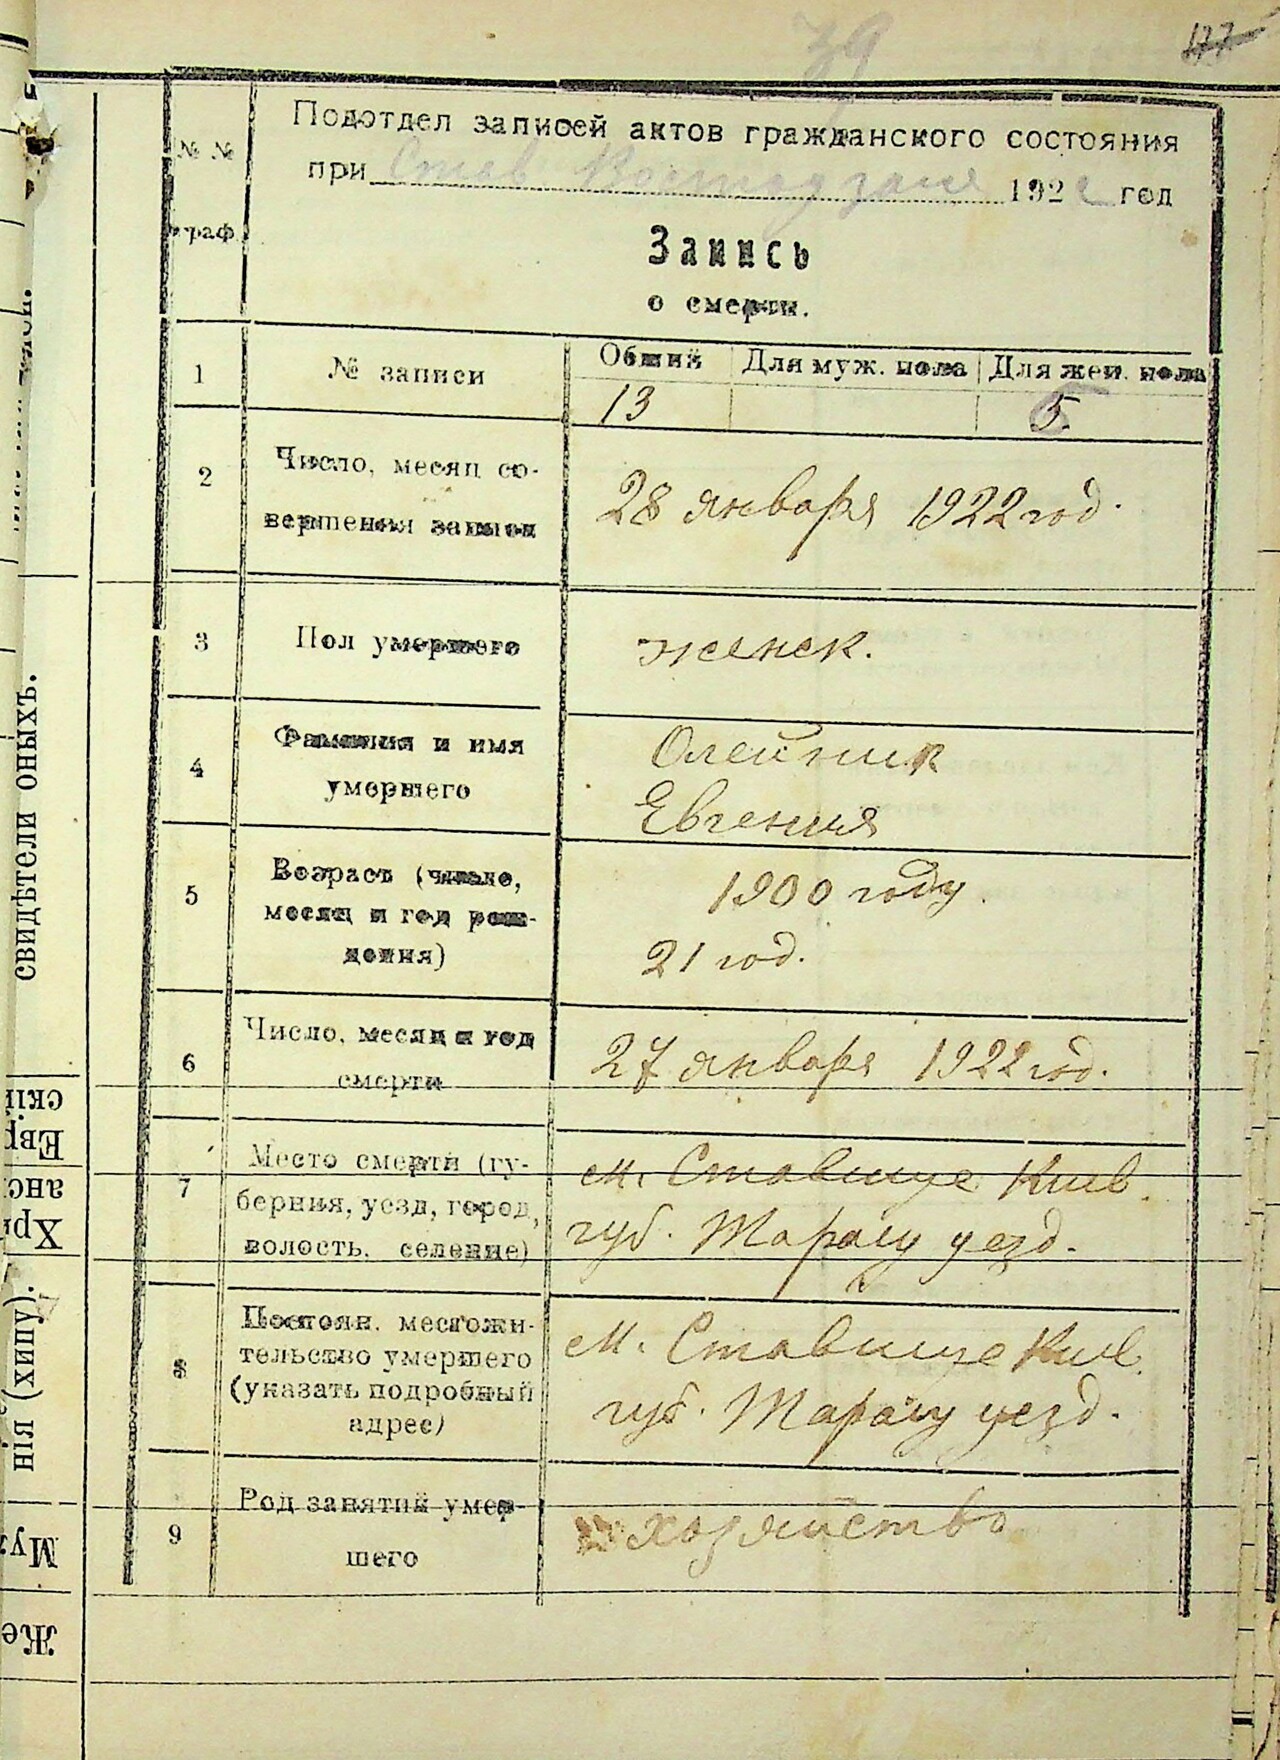 39
177
№ №
граф
Подотдел записей актов гражданского состояния
при Став 1922 год
Запись
о смерти.
1
№ записи
Общий Для муж. пола Для жен. пола
13 5
2
Число, месяц со-
вершения записи
28 января 1922 год.
3
Пол умершего
женск.
4
Фамилия и имя
умершего
Олейник
Евгения
5
Возраст (число,
месяц и год рож-
дения)
1900 году.
21 год.
6
Число, месяц и год
смерти
27 января 1922 год.
7
Место смерти (гу-
берния, уезд, город,
волость, селение)
м. Ставище Киев.
губ. Таращ уезд.
8
Постоян. местожи-
тельство умершего
(указать подробный
адрес)
м. Ставище Киев.
губ. Таращ уезд.
9
Род занятий умер-
шего
хозяйство
свидѣтели оныхъ.
нія (хипу).